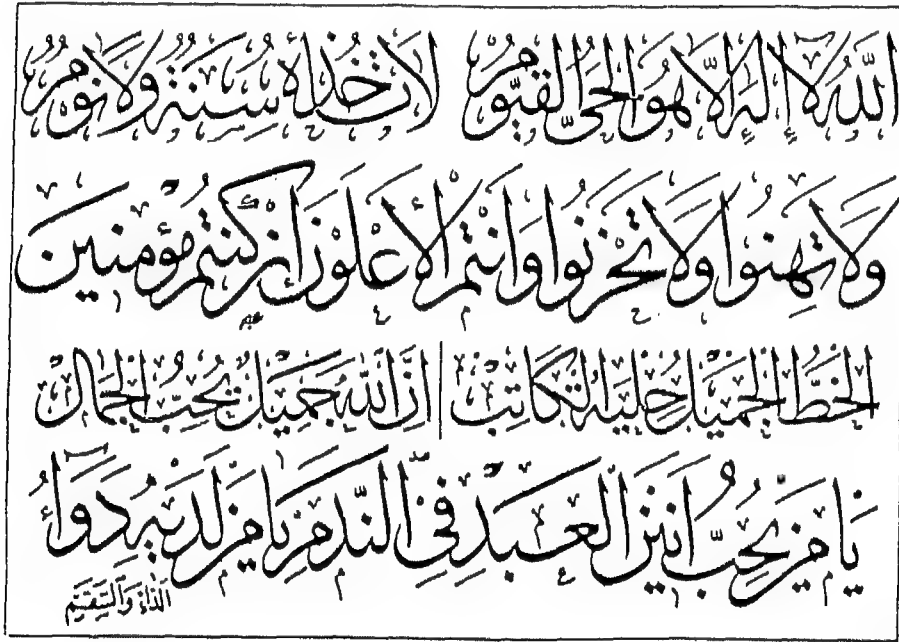 اللهُ لَا إِلٰهَ إِلَّا هُوَ الحَيُّ القَيُّومُ لَا تَأْخُذُهُ سِنَةٌ وَلَا نَوْمٌ
وَلَا تَهِنُوا وَلَا تَحْزَنُوا وَأَنْتُمُ الأَعْلَوْنَ إِنْ كُنْتُمْ مُؤْمِنِينَ
الخَطُّ الجَمِيْلُ حِلْيَةُ الكَاتِبِ
إِنَّ اللهَ جَمِيْلٌ يُحِبُّ الجَمَالَ
يَا مَنْ يُحِبُّ أَنِيْنَ العَبْدِ فِي النَّدَمِ يَا مَنْ لَدَيْهِ دَوَاءُ
الدَّاءِ وَالسَّقَمِ